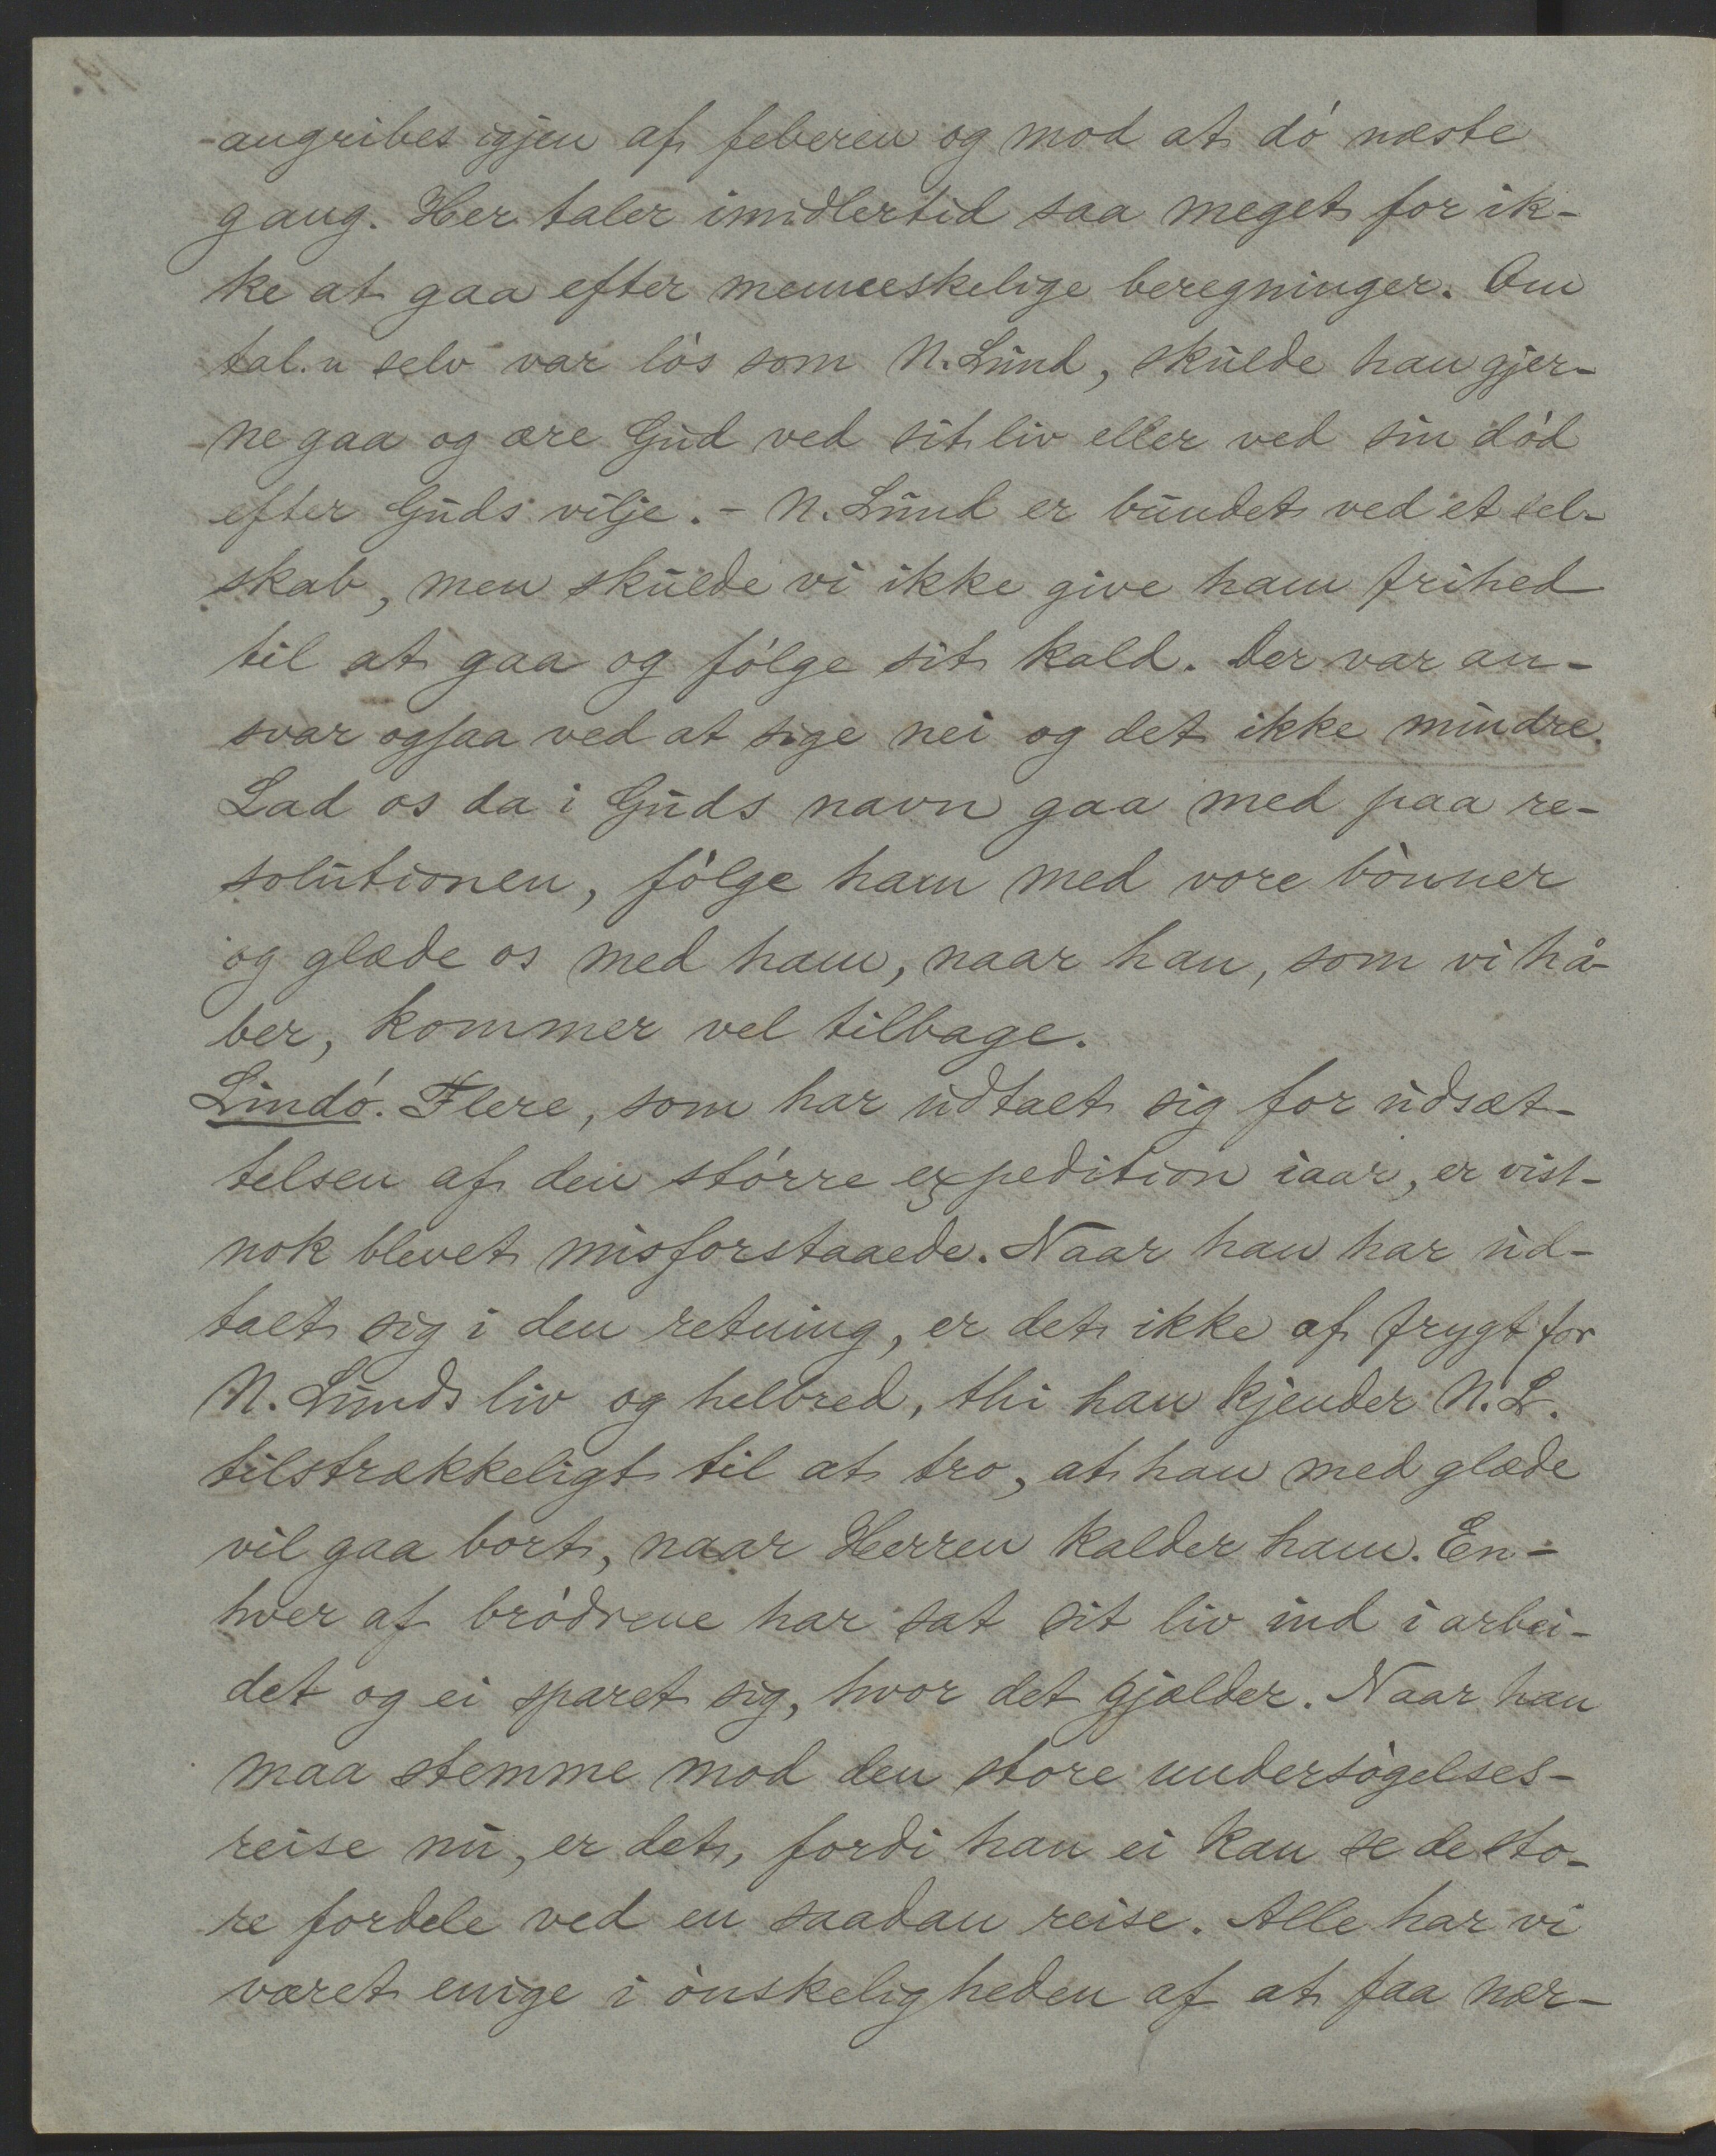 angribes igjen af feberen og mod at dó næste
gang. Her taler imidlertid saa meget for ik-
ke at gaa efter menneskelige beregninger. Om
tal.n selv var lós som N. Lund, skulde han gjer-
ne gaa og ære Gud ved sit liv eller ved sin dód
efter Guds vilje. - N. Lund er bundet ved et sel-
skab, men skulde vi ikke give ham frihed
til at gaa og fólge sit kald. Der var an-
svar ogsaa ved at sige nei og det ikke mindre.
Lad os da i Guds navn gaa med paa re-
solutionen, fólge ham med vore bónner
og glæde os med ham, naar han, som vi hå-
ber, kommer vel tilbage.
Lindó. Flere, som har udtalt sig for udsæt-
telsen af den stórre expedition iaar, er vist-
nok blevet misforstaaede. Naar han har ud-
talt sig i den retning, er det ikke af frygt for
N. Lunds liv og helbred, thi han kjender N. L.
tilstrækkeligt til at tro, at han med glæde
vil gaa bort, naar Herren kalder ham. En-
hver af bródrene har sat sit liv ind i arbei-
det og ei sparet sig, hvor det gjælder. Naar han
maa stemme mod den store undersógelses-
reise nu, er det, fordi han ei kan se de sto-
re fordele ved en saadan reise. Alle har vi
været enige i ónskeligheden af at faa nær-